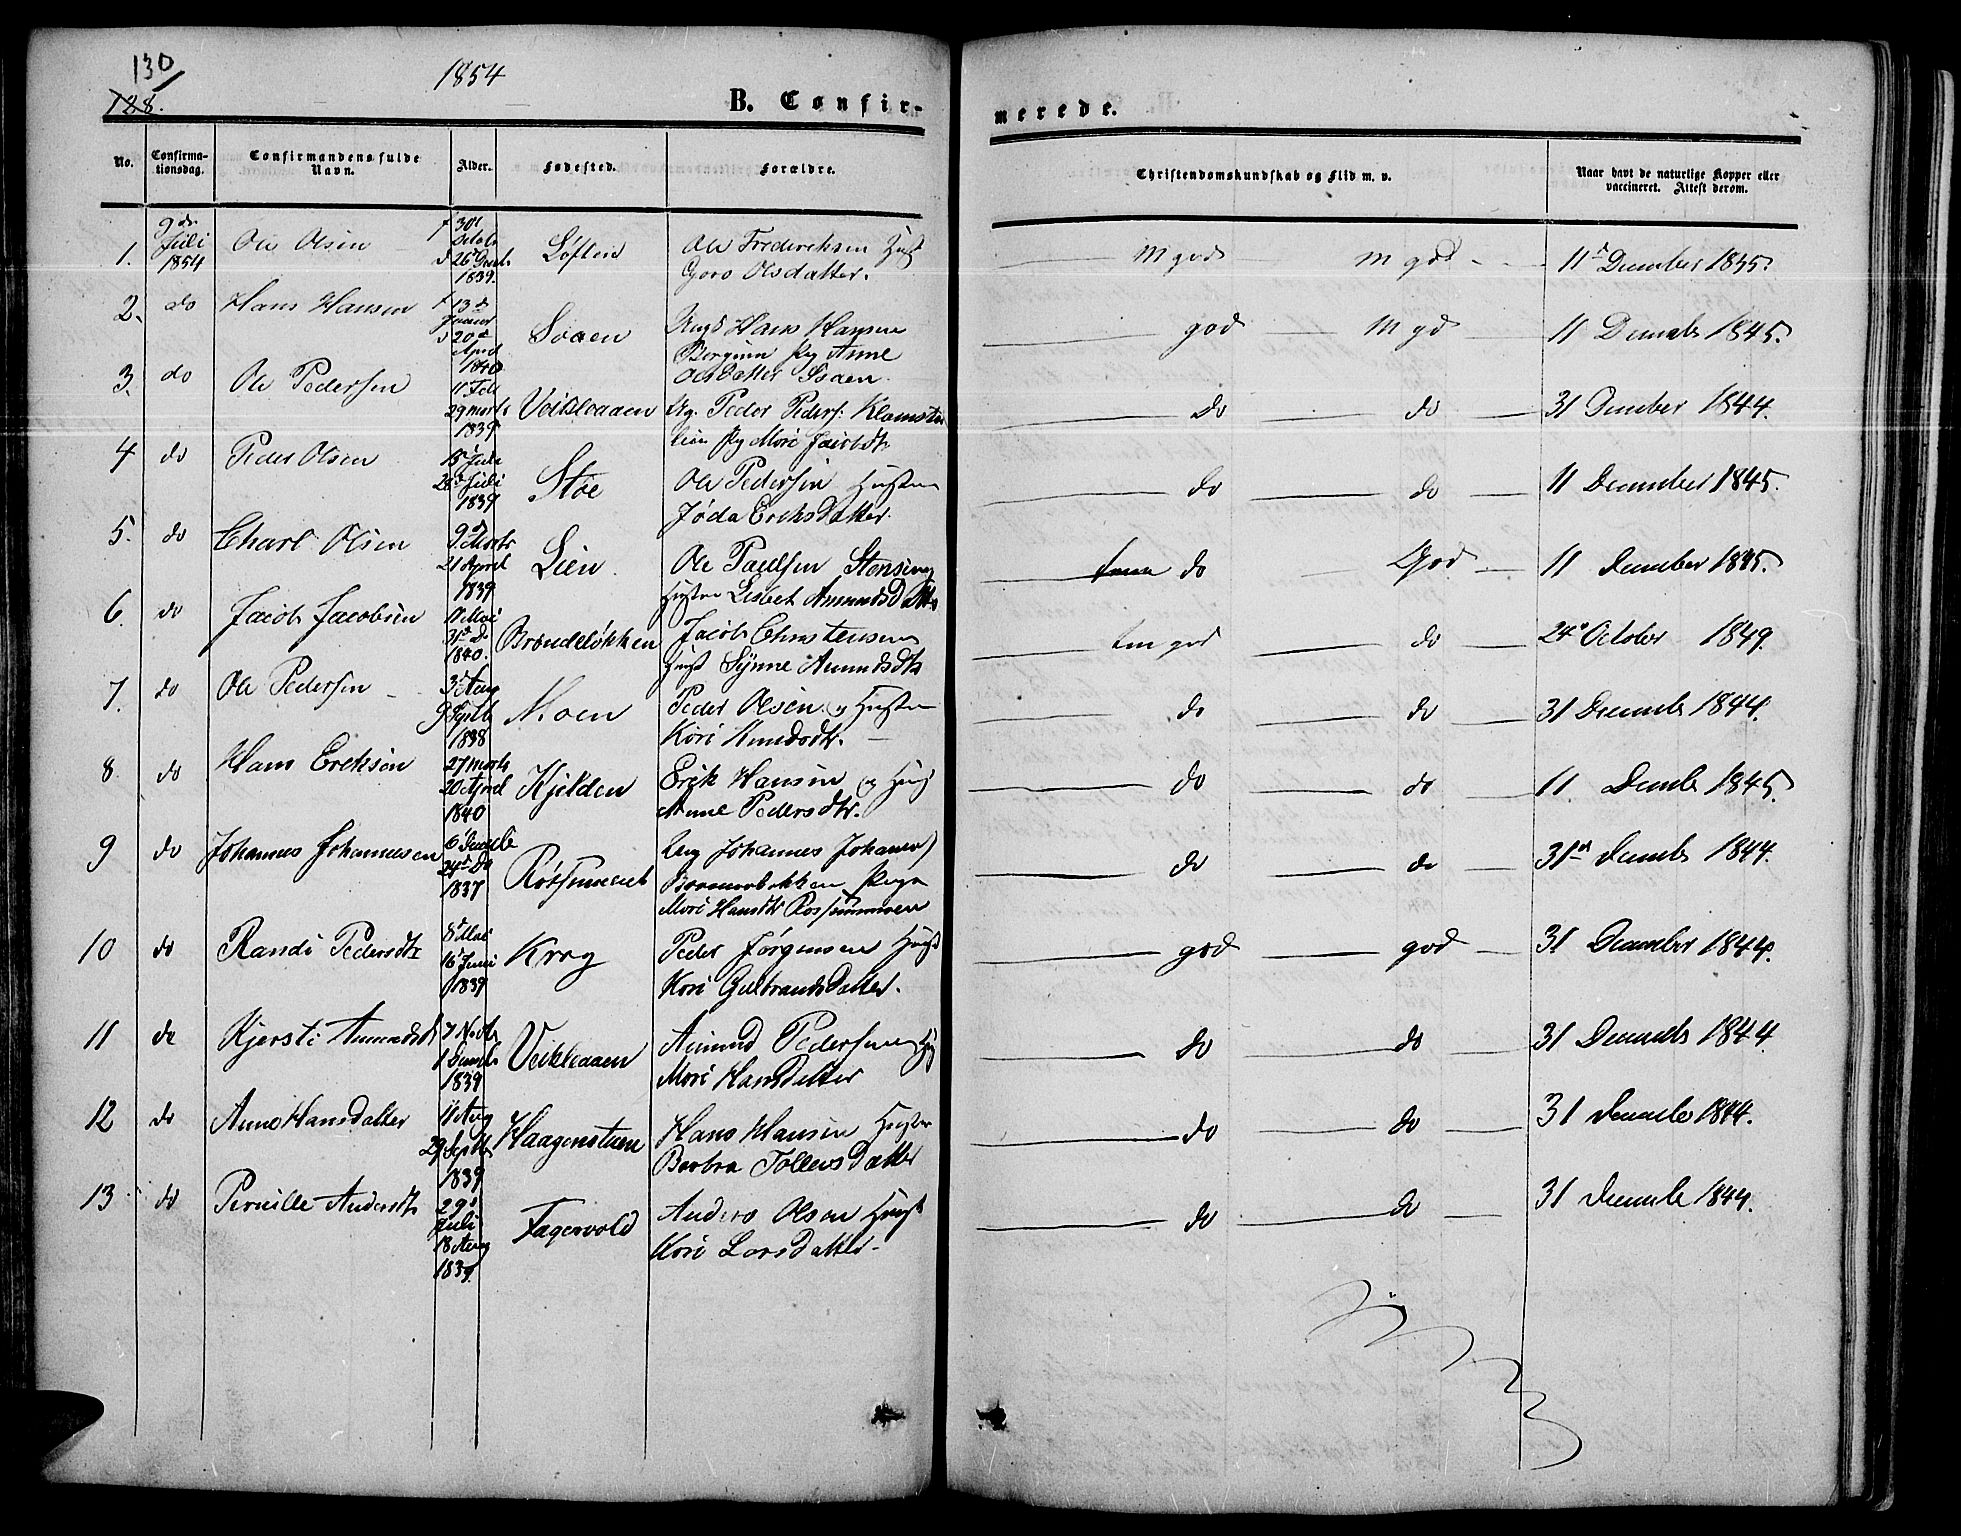 130
128.
1854
B. Confir-
merede.
No.
Confirma-
tionsdag.
Confirmandens fulde
Navn.
Alder.
Fødested.
Forældre.
Christendomskundskab og Flid m. v.
Naar havt de naturlige Kopper eller
vaccineret. Attest derom.
1. 9de Juli 1854 Ole Olsen f 30t 1839. Løften Ole Frederiksen Hust
Goro Olsdatter. M god M god 11 December 1835.
2. do Hans Hansen f 13de 20de April 1840 Svaen Hans Hansen
Pig Anne
Olsdatter Svaen god M gd 11 Decemb 1845.
3. do Ole Pedersen 11 Feb 29 Marts 1839 Veikleaaen Ug. Peder Peders: Klomste
lien Pig Mari do do 31 December 1844.
4 do Peder Olsen 15 26 Juli 1839 Støe Ole Pedersen Hustru
Jøda Eriksdatter. do do 11 December 1845.
5. do Charl Olsen 9 Marts 21 April 1839 Lien Ole Paulsen
Hustru Lisbet Amundsdatt do God 11 December 1845.
6. do Jacob Jacobsen 11 Mai 31 do 1840. Brændeløkken Jacob Christensen
Hust Synne Amundsdtr god do 24 October 1849.
7. do Ole Pedersen 3 Aug 9 Septb 1838 Moen Peder Olsen og Hustru
Kari Knudsdtr. do do 31 Decemb 1844.
8 do Hans Eriksen 27 Marts 20 April 1840 Kjelden Erik Hansen og Hust
Anne Pedersdtr. do do 11. Decemb 1845.
9 do Johannes Johannesen 6 Decemb 24 do 1837 Johannes
Mari Hansdtr do do 31 Decemb 1844.
10 do Randi Pedersdtr 8 Mai 16 Juni 1839 Krog Peder Jørgensen Hust
Kari Gulbrandsdatter. god god 31 December 1844.
11 do Kjersti Amundsdt 7 Novb 1 Decemb 1839 Veikleaaen Amund Pedersen Hust
Mari Hansdatter do do 31 Decemb 1844.
12 do Anne Hansdatter 11 Aug 29 Septb 1839 Haagenstuen Hans Hansen Hustru
Barbra Tollevsdatter do do 31 Decembe 1844.
13 do Pernille Andersdtr 29 Juli 18 Aug 1839. Fagervold Anders Olsen Hust
Kari Larsdatter do do 31 Decembe 1844.